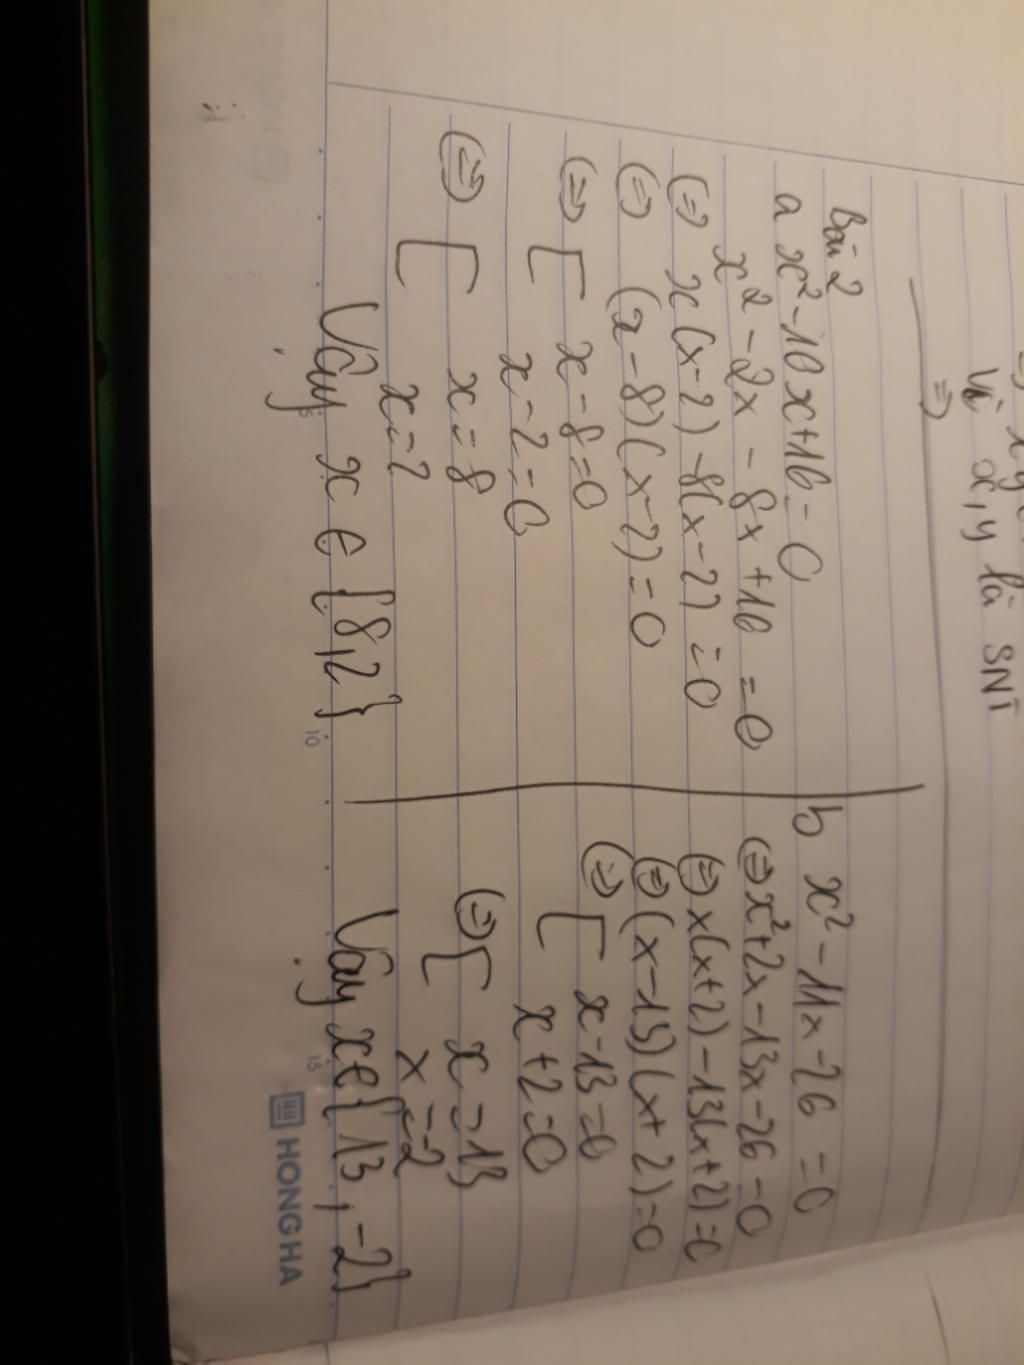 vì x, y là SNT
=>
Bài 2
a x² - 10x + 16 = 0
x² - 2x - 8x + 16 = 0
(=) x(x-2) - 8(x-2) = 0
(=) (x-8)(x-2) = 0
(=) [ x-8=0
x-2=0
(=) [ x=8
x=2
Vậy x ∈ {8,2}
b x² - 11x - 26 = 0
(=) x² + 2x - 13x - 26 = 0
(=) x(x+2) - 13(x+2) = 0
(=) (x-13)(x+2) = 0
(=) [ x-13=0
x+2=0
(=) [ x=13
x=-2
Vay x∈{13, -2}
5
10
15
HONG HA